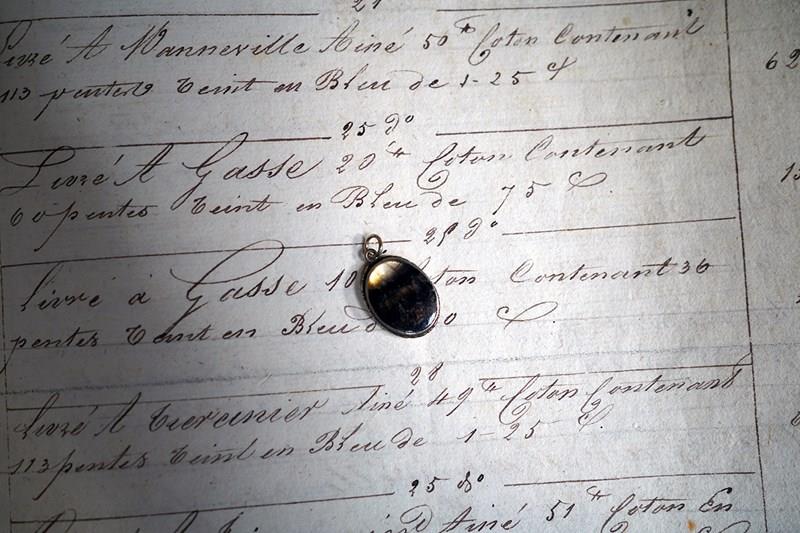 Livré A Manneville Ainé 50 lt Coton Contenant
113 pentes teint en Bleu de 1-25
25 do
Livré A Gasse 20 lt Coton Contenant
60 pentes teint en Bleu de 75
25 do
livré à Gasse 10 ton Contenant 36
pentes teint en Bleu d 0
28
Livré A ainé 49 lt Coton Contenant
113 pentes teint en Bleu de 1-25
25 do
Ainé 51 lt Coton En